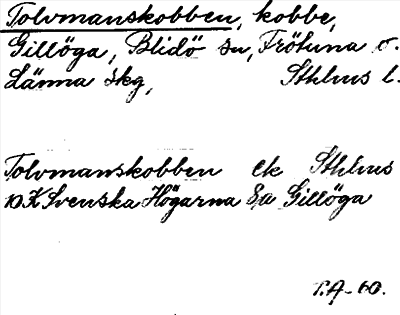 Tolvmanskobben, kobbe,
Gillöga, Blidö sn, Frötuna o.
Länna skg, Sthlms l.
Tolvmanskobben ek Sthlms
10K Svenska Högarna Sa Gillöga
T.A-60.